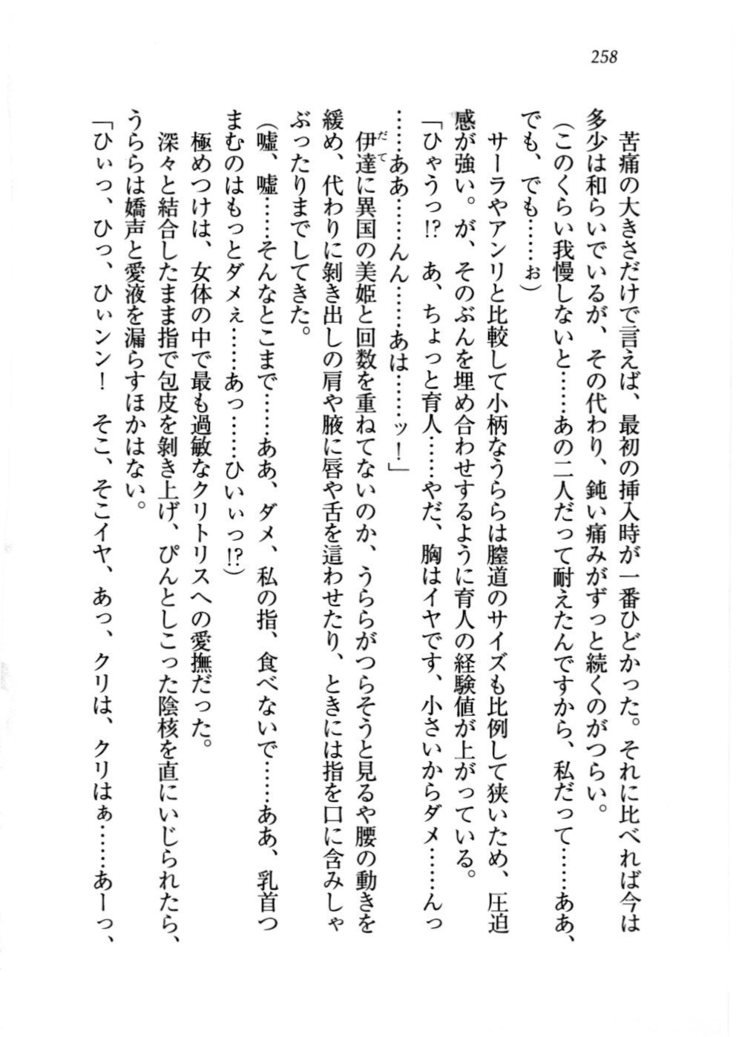 258
苦痛の大きさだけで言えば、最初の挿入時が一番ひどかった。それに比べれば今は
多少は和らいでいるが、その代わり、鈍い痛みがずっと続くのがつらい。
（このくらい我慢しないと……あの二人だって耐えたんですから、私だって……ああ、
でも、でも……ぉ）
サーラやアンリと比較して小柄なうららは膣道のサイズも比例して狭いため、圧迫
感が強い。が、そのぶんを埋め合わせするように育人の経験値が上がっている。
「ひゃうっ!?　あ、ちょっと育人……やだ、胸はイヤです、小さいからダメ……んっ
……ああ……んん……あは……ッ！」
伊達に異国の美姫と回数を重ねてないのか、うららがつらそうと見るや腰の動きを
だて
緩め、代わりに剝き出しの肩や腋に唇や舌を這わせたり、ときには指を口に含みしゃ
ぶったりまでしてきた。
（嘘、嘘……そんなとこまで……ああ、ダメ、私の指、食べないで……ああ、乳首つ
まむのはもっとダメぇ……あっ……ひいぃっ!?）
極めつけは、女体の中で最も過敏なクリトリスへの愛撫だった。
深々と結合したまま指で包皮を剝き上げ、ぴんとしこった陰核を直にいじられたら、
うららは嬌声と愛液を漏らすほかはない。
「ひぃっ、ひっ、ひぃンン！　そこ、そこイヤ、あっ、クリは、クリはぁ……あーっ、